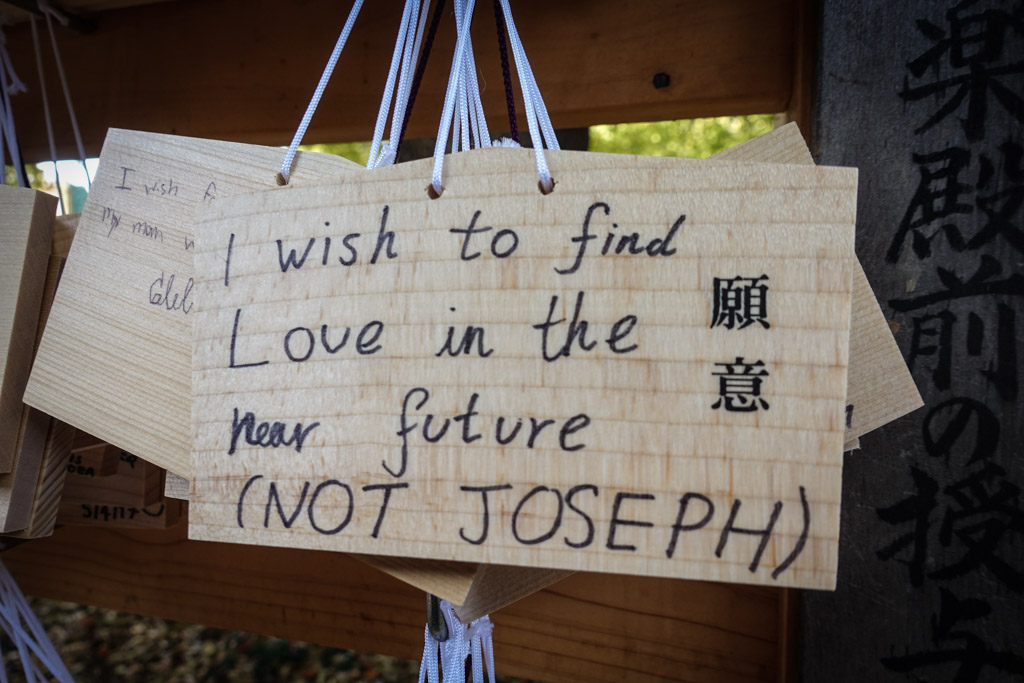 I wish to find
Love in the
near future
(NOT JOSEPH)
願意
I wish
my mom
楽殿前の授与